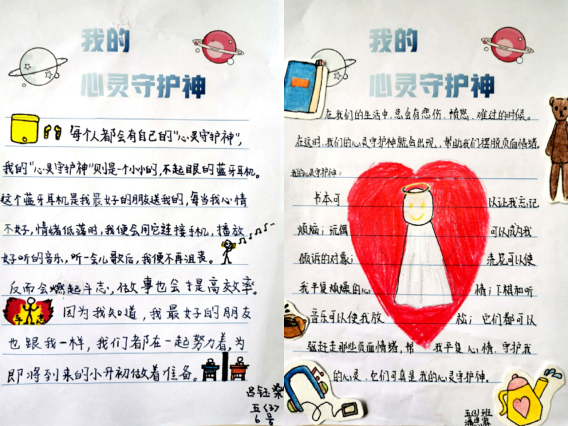 我的
心灵守护神
每个人都会有自己的“心灵守护神”,
我的“心灵守护神”则是一个小小的,不起眼的蓝牙耳机。
这个蓝牙耳机是我最好的朋友送我的,每当我心情
不好,情绪低落时,我便会用它连接手机,播放
好听的音乐,听一会儿歌后,我便不再沮丧。
反而会燃起斗志,做事也会十是高效率。
因为我知道,我最好的朋友
也跟我一样,我们都在一起努力着,为
即将到来的小开初做着准备。
五(3)
6号
我的
心灵守护神
在我们的生活中,总会有悲伤、愤怒、难过的时候。
在这时,我们的心灵守护神就会出现,帮助我们摆脱负面情绪。
我的心灵守护神:
书本可 以让我忘记
烦恼;玩偶 可以成为我
倾诉的对象; 洗尼可以使
我平复烦燥的心 情;下棋和听
音乐可以使我放 松;它们都可以
驱赶走那些负面情绪,帮 我平复心情,守护我
的心灵,它们可真是我的心灵守护神。
五(3)班